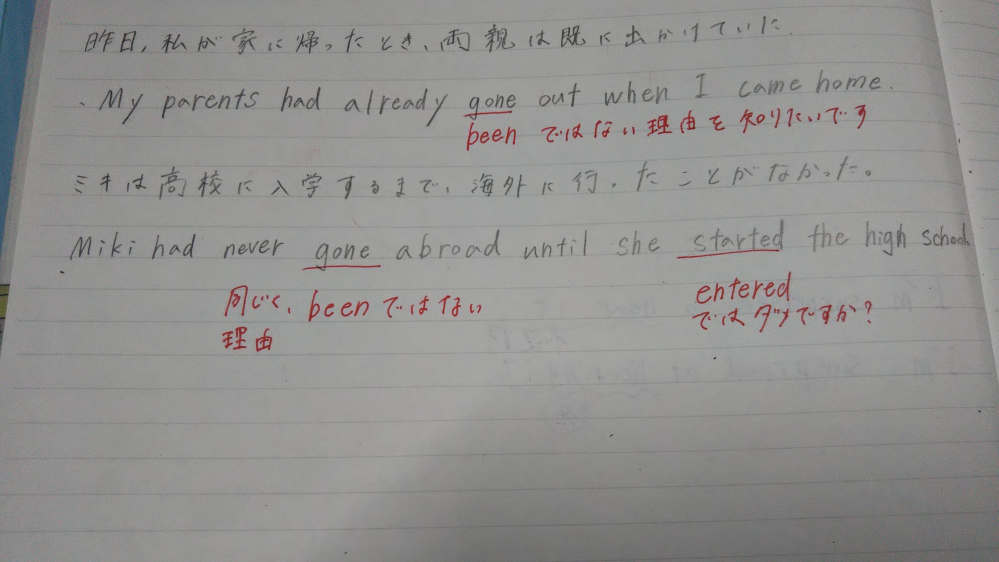 昨日、私が家に帰ったとき、両親は既に出かけていた.
My parents had already gone out when I came home.
been ではない理由を知りたいです
ミキは高校に入学するまで、海外に行ったことがなかった。
Miki had never gone abroad until she started the high school
同じく、beenではない
理由
entered
ではダメですか?